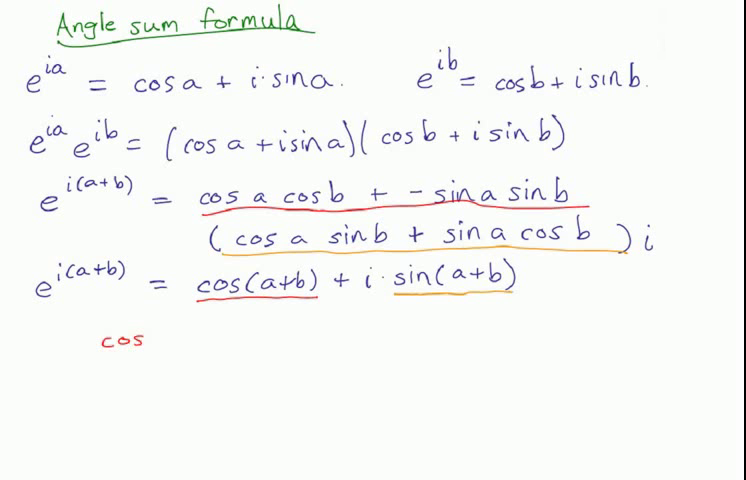 Angle sum formula
e^{ia} = cos a + i · sin a.    e^{ib} = cos b + i sin b.
e^{ia} e^{ib} = (cos a + i sin a)(cos b + i sin b)
e^{i(a+b)} = cos a cos b + - sin a sin b
(cos a sin b + sin a cos b) i
e^{i(a+b)} = cos(a+b) + i · sin(a+b)
cos